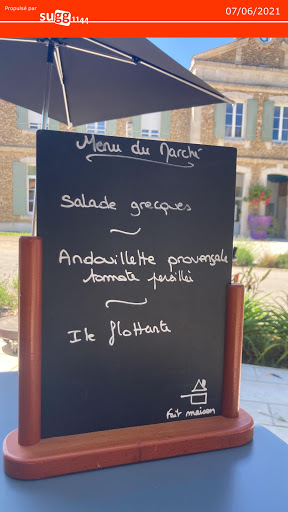 Propulsé par
sugg1144
07/06/2021
Menu du Marché
Salade grecques
Andouillette provençale
tomate persillé
Ile flottante
Fait maison